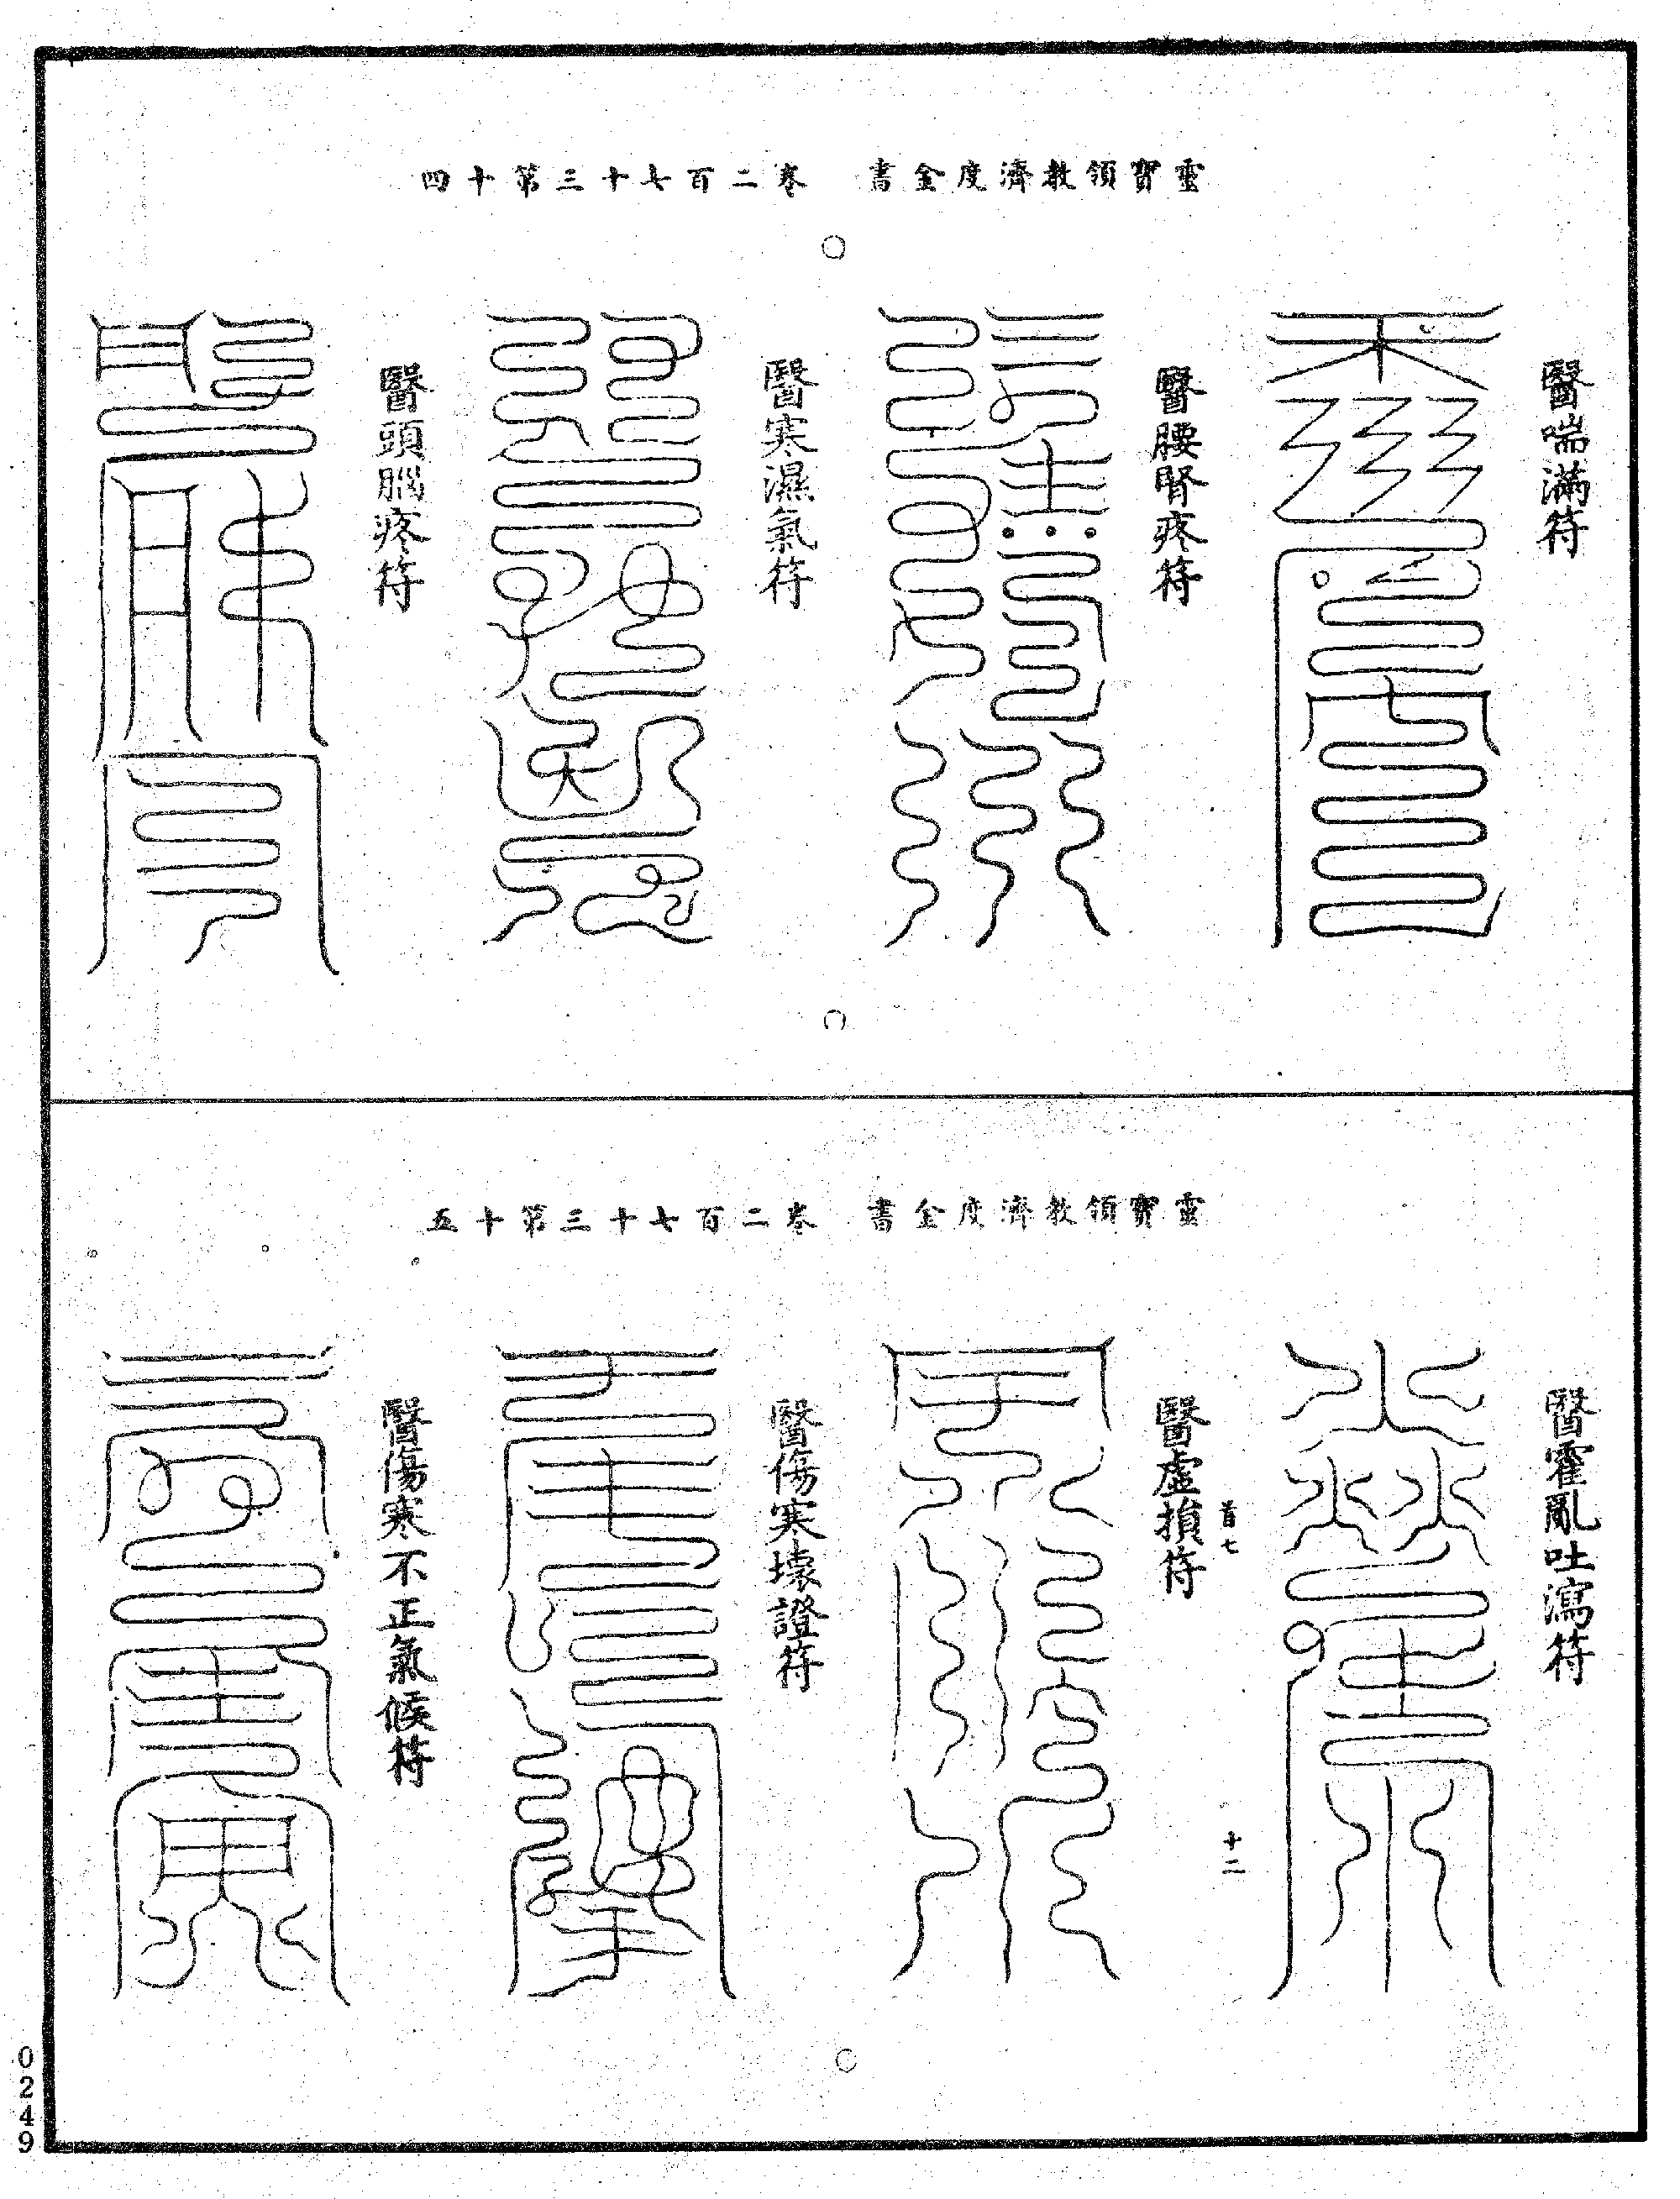 靈寶領教濟度金書　卷二百七十三第十四
醫喘滿符
醫腰腎疼符
醫寒濕氣符
醫頭腦疼符
靈寶領教濟度金書　卷二百七十三第十五
醫霍亂吐瀉符
首七
十二
醫虛損符
醫傷寒壞證符
醫傷寒不正氣候符
0249